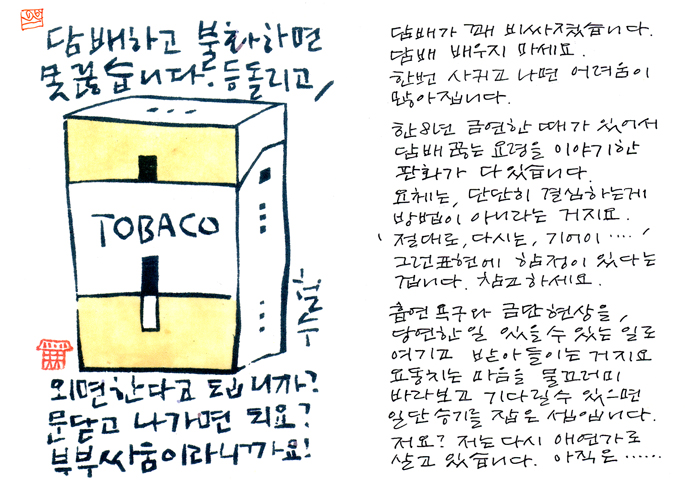 담배하고 불화하면
못끊습니다. 등돌리고,
TOBACO
철수
외면한다고 됩니까?
문닫고 나가면 되요?
부부싸움이라니까요!
담배가 꽤 비싸졌습니다.
담배 배우지 마세요.
한번 사귀고 나면 어려움이
많아집니다.
한 8년 금연한 때가 있어서
담배 끊는 요령을 이야기한
판화가 다 있습니다.
요체는, 단단히 결심하는게
방법이 아니라는 거지요.
'절대로, 다시는, 기어이 ····'
그런표현에 함정이 있다는
겁니다. 참고하세요.
흡연욕구와 금단현상을,
당연한일 있을수 있는 일로
여기고 받아들이는 거지요
요동치는 마음을 물끄러미
바라보고 기다릴수 있으면
일단 승기를 잡은 셈입니다.
저요? 저는 다시 애연가로
살고 있습니다. 아직은 ······